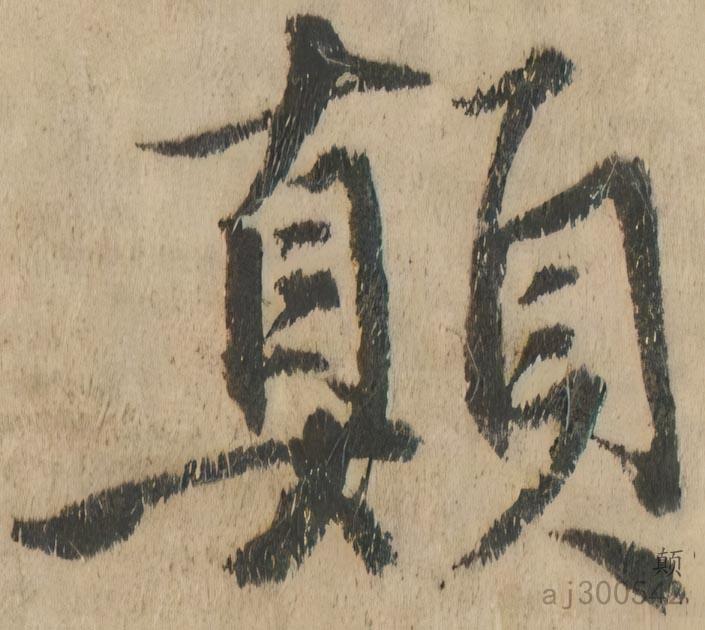 顛
颠
aj300542